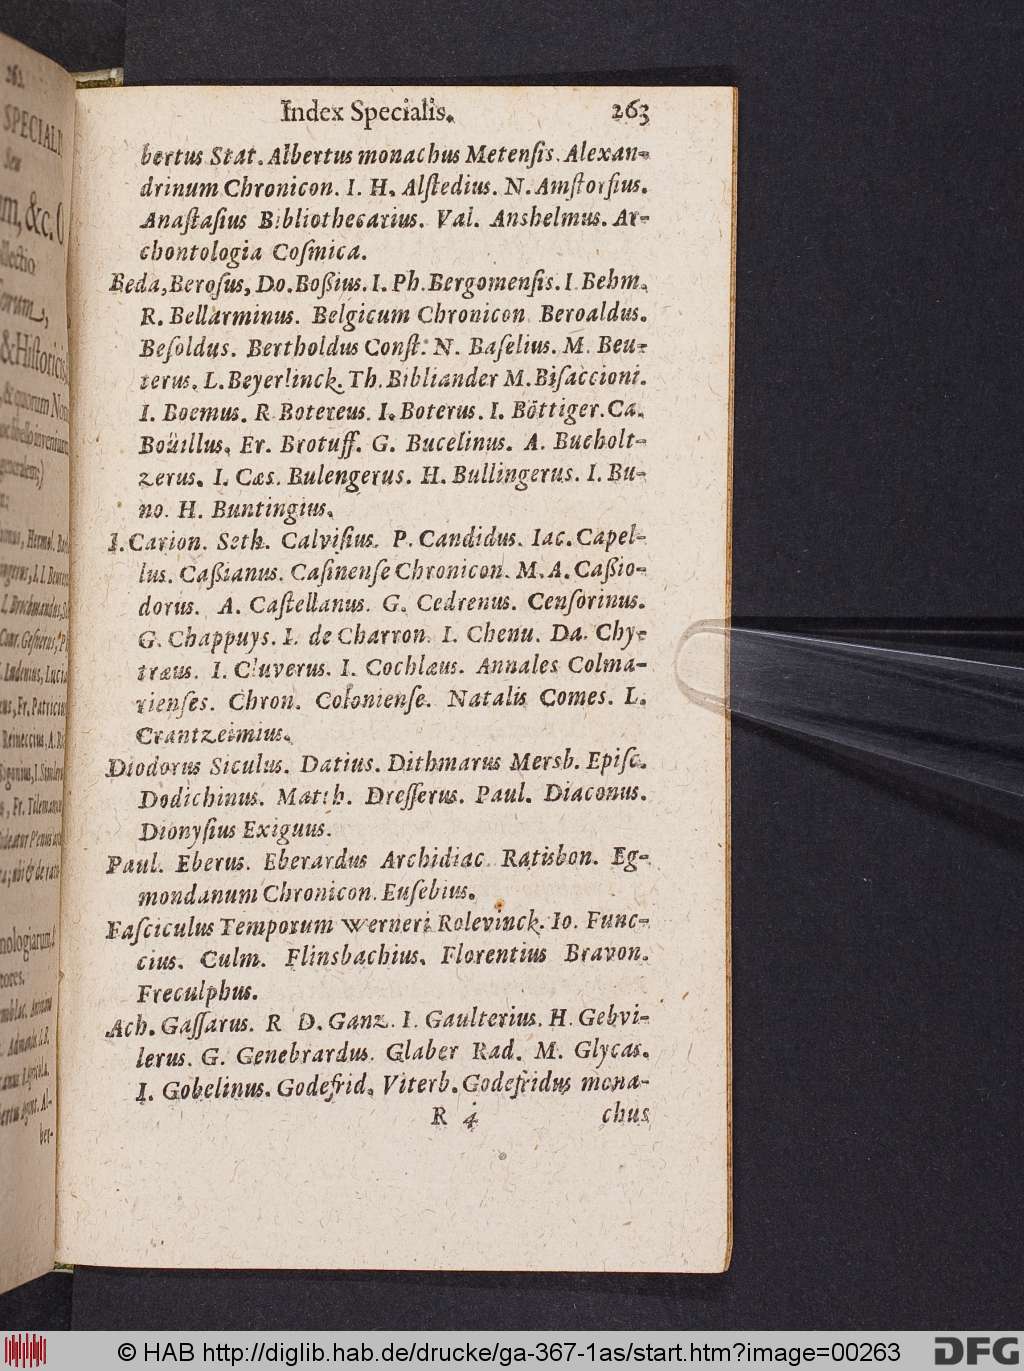 Index Specialis. 263
bertus Stat. Albertus monachus Metenſis. Alexan-
drinum Chronicon. I. H. Alſtedius. N. Amſtorſius.
Anaſtaſius Bibliothecarius. Val. Anshelmus. Ar-
chontologia Coſmica.
Beda, Beroſus, Do. Boßius. I. Ph. Bergomenſis. I. Behm.
R. Bellarminus. Belgicum Chronicon. Beroaldus.
Beſoldus. Bertholdus Conſt. N. Baſelius. M. Beu-
terus. L. Beyerlinck. Th. Bibliander M. Biſaccioni.
I. Boemus. R. Botereus. I. Boterus. I. Böttiger. Ca.
Boüillus. Er. Brotuff. G. Bucelinus. A. Bucholt-
zerus. I. Cæs. Bulengerus. H. Bullingerus. I. Bu-
no. H. Buntingius.
I. Carion. Seth. Calviſius. P. Candidus. Iac. Capel-
lus. Caßianus. Caſinenſe Chronicon. M. A. Caßio-
dorus. A. Caſtellanus. G. Cedrenus. Cenſorinus.
G. Chappuys. I. de Charron. I. Chenu. Da. Chy-
træus. I. Cluverus. I. Cochlæus. Annales Colma-
rienſes. Chron. Colonienſe. Natalis Comes. L.
Crantzeimius.
Diodorus Siculus. Datius. Dithmarus Mersb. Epiſc.
Dodichinus. Matth. Dreſſerus. Paul. Diaconus.
Dionyſius Exiguus.
Paul. Eberus. Eberardus Archidiac. Ratisbon. Eg-
mondanum Chronicon. Euſebius.
Faſciculus Temporum Werneri Rolevinck. Io. Func-
cius. Culm. Flinsbachius. Florentius Bravon.
Freculphus.
Ach. Gaſſarus. R D. Ganz. I. Gaulterius. H. Gebvi-
lerus. G. Genebrardus. Glaber Rad. M. Glycas.
I. Gobelinus. Godefrid. Viterb. Godefridus mona-
R 4 chus
© HAB http://diglib.hab.de/drucke/ga-367-1as/start.htm?image=00263
DFG